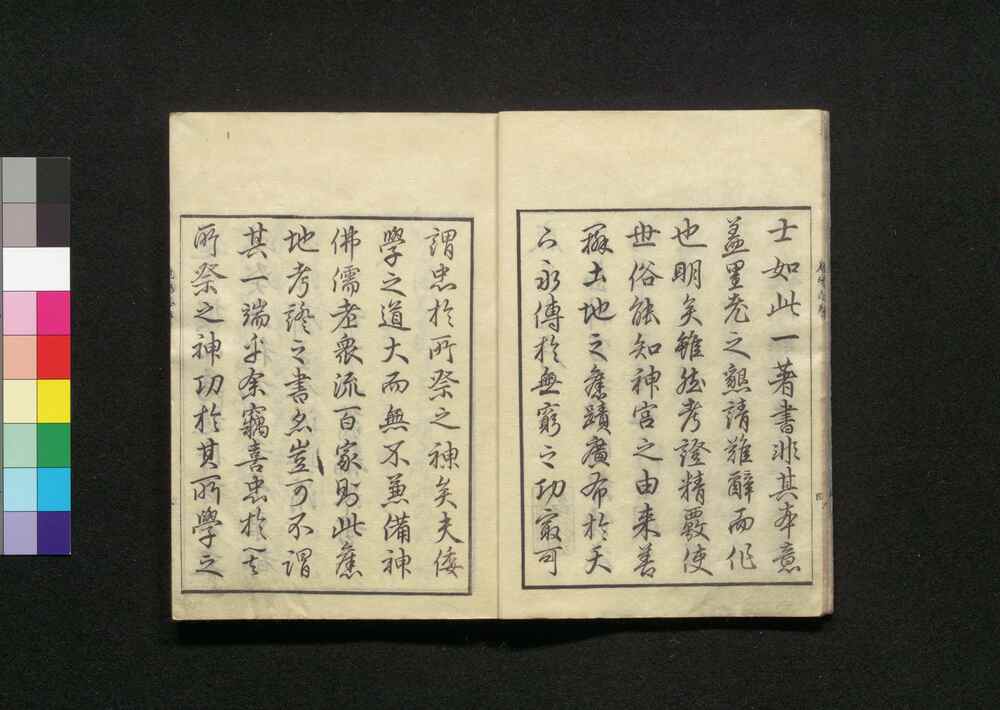 士如此一著書非其本意
蓋里老之懇請難辭而作
也明矣雖然考證精覈使
世俗能知神宮之由来善
搦土地之舊蹟廣布於天
下永傳於無窮之功最可
謂忠於所祭之神矣夫倭
學之道大而無不兼備神
佛儒老衆流百家則此舊
地考證之書忽豈可不謂
其一端乎余竊喜忠於
所祭之神功於其所學之